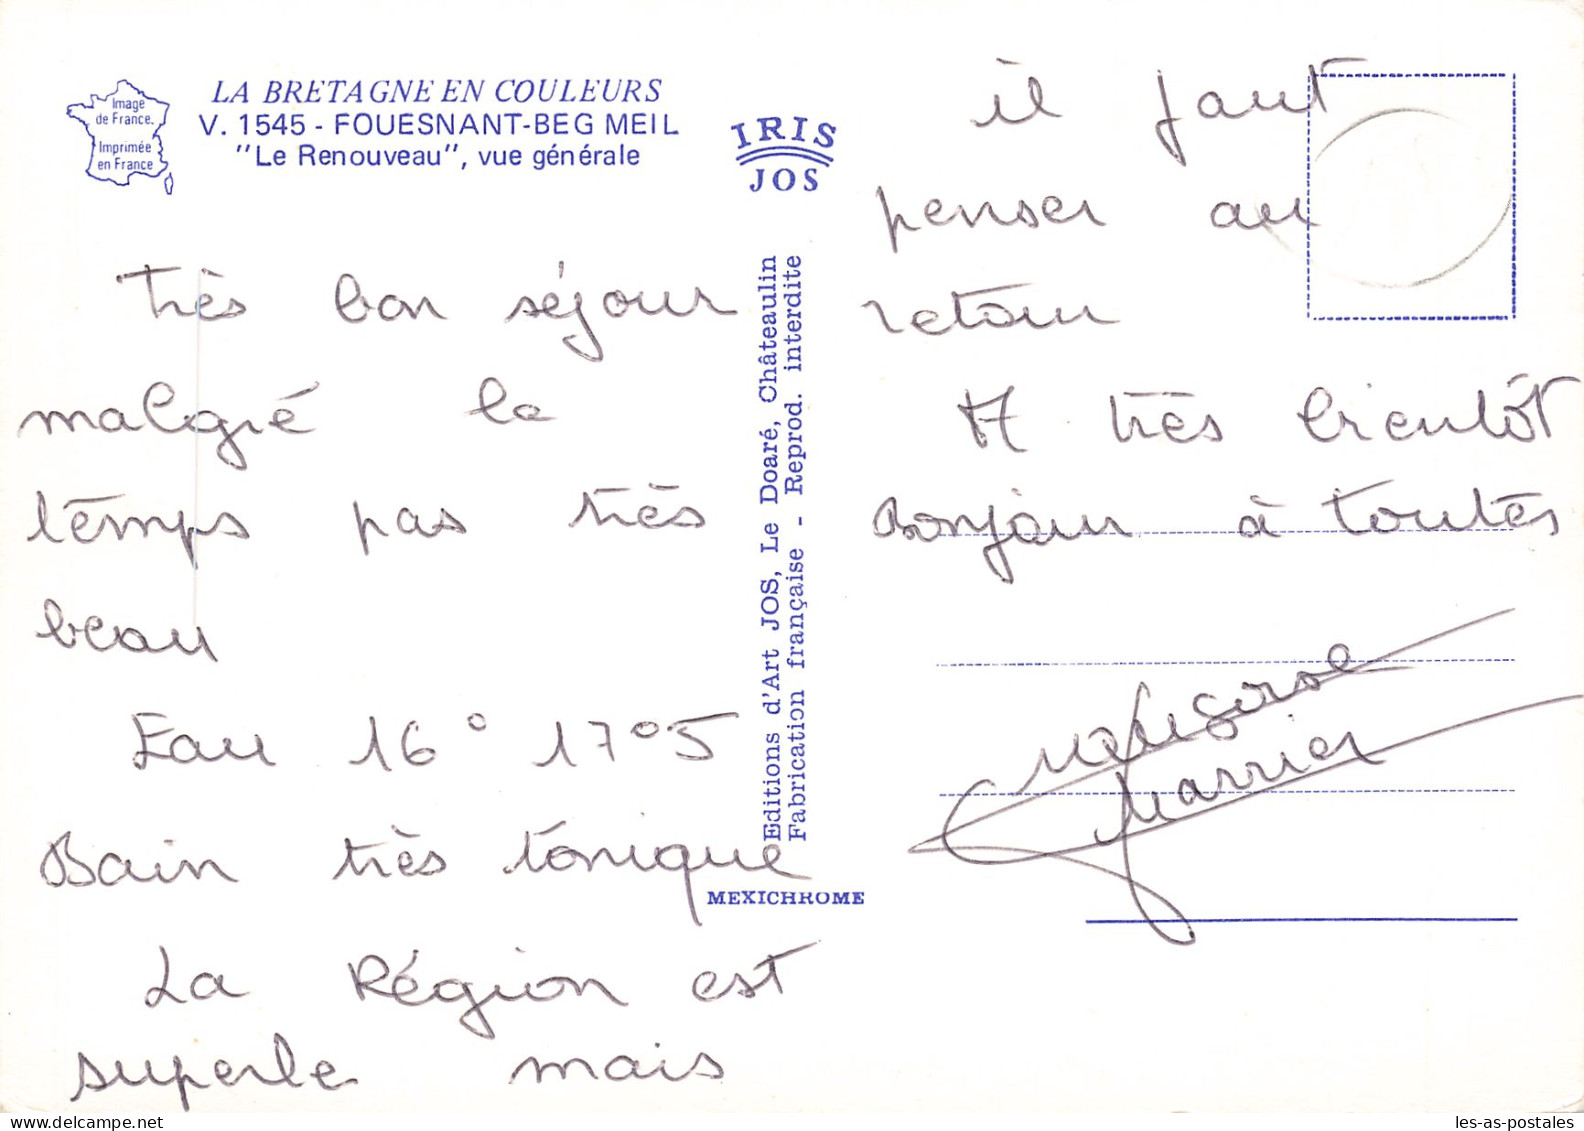 Image
de France.
Imprimée
en France
LA BRETAGNE EN COULEURS
V. 1545 - FOUESNANT-BEG MEIL
"Le Renouveau", vue générale
IRIS
JOS
Très bon séjour
malgré le
temps pas très
beau
Eau 16° 17°5
Bain très tonique
La Région est
superbe mais
Editions d'Art JOS, Le Doaré, Châteaulin
Fabrication française - Reprod. interdite
MEXICHROME
il faut
penser au
retour
A très bientôt
Bonjour à toutes
les-as-postales